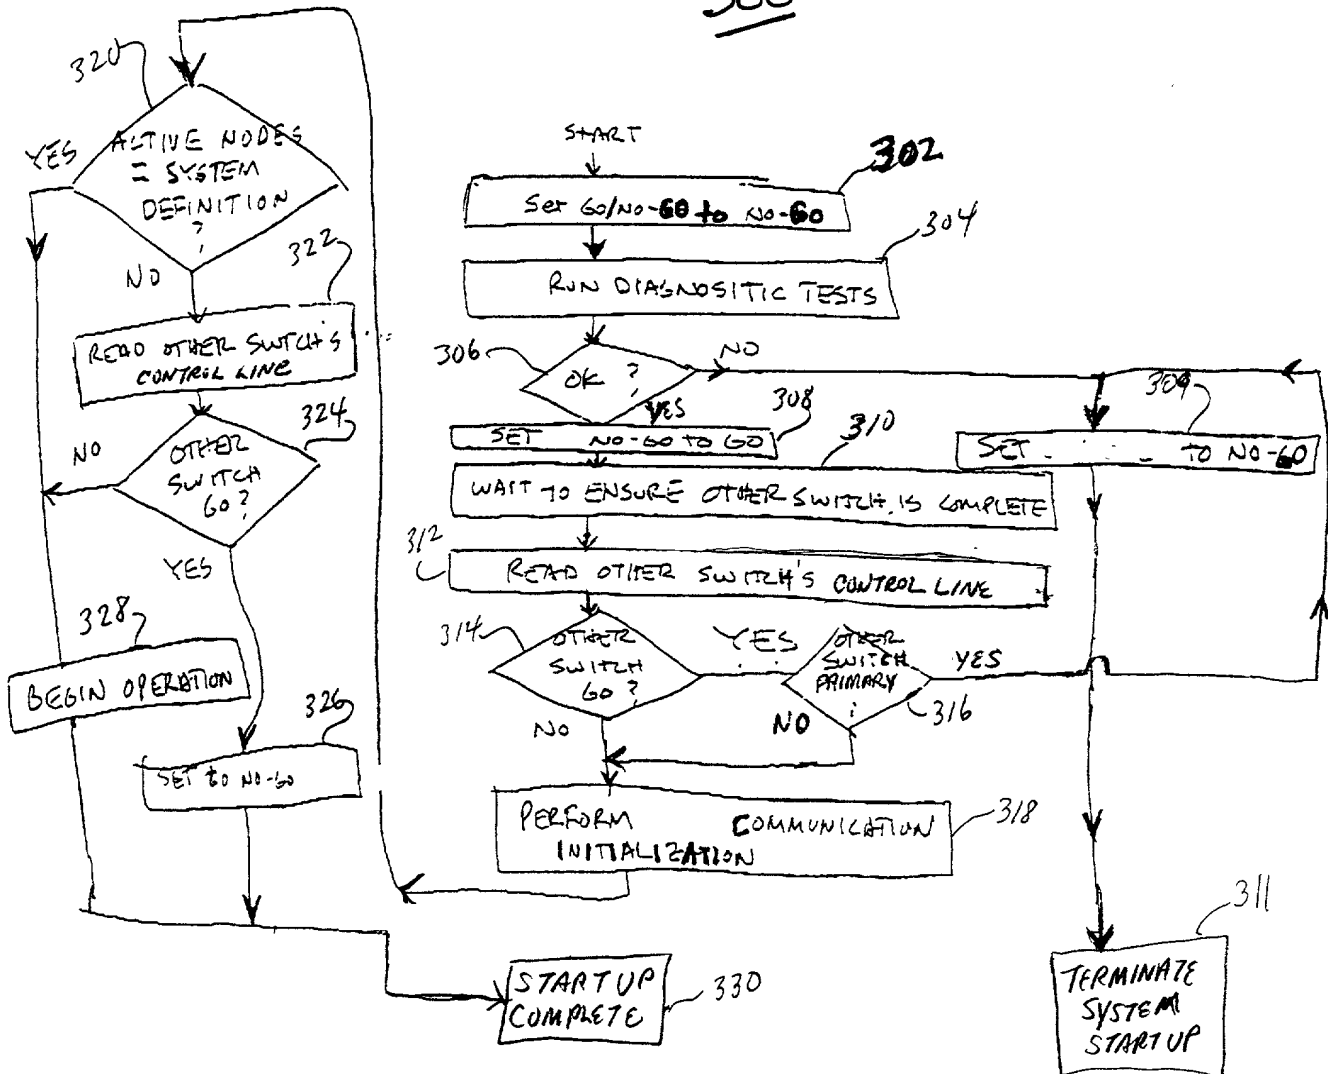 300
320
YES
ACTIVE NODES
= SYSTEM
DEFINITION
?
NO
322
READ OTHER SWTCH'S
CONTROL LINE
324
NO
OTHER
SWITCH
GO?
YES
328
BEGIN OPERATION
326
SET to NO-GO
START
302
Set GO/NO-GO to NO-GO
304
RUN DIAGNOSITIC TESTS
306
OK ?
NO
YES
308
SET NO-GO TO GO
309
SET TO NO-GO
310
WAIT TO ENSURE OTHER SWITCH IS COMPLETE
312
READ OTHER SWITCH'S CONTROL LINE
314
OTHER
SWITCH
GO ?
YES
NO
OTHER
SWITCH
PRIMARY
?
YES
316
NO
PERFORM COMMUNICATION
INITIALIZATION
318
START UP
COMPLETE
330
311
TERMINATE
SYSTEM
START UP